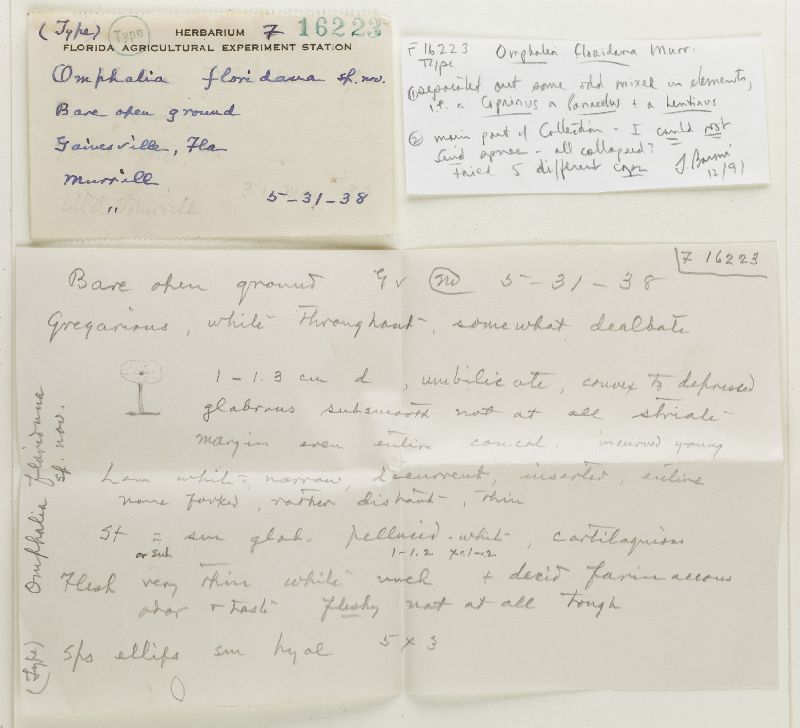 (Type) Type HERBARIUM F 16223
FLORIDA AGRICULTURAL EXPERIMENT STATION
Omphalia floridana sp. nov.
Bare open ground
Gainesville, Fla
Murrill
" 5-31-38
W.A. Murrill
F16223 Omphalia floridana Murr.
Type
① separated out some odd mixed in elements,
i.e. a Coprinus a Panaeolus + a Lentinus
② main part of Collection - I could not
find spores - all collapsed?
tried 5 different caps
12/91
F 16223
Bare open ground Gv no 5-31-38
Gregarious, white throughout, somewhat dealbate
1-1.3 cm d, umbilicate, convex to depressed
glabrous subsmooth not at all striate
margin even entire concol. incurved young
Lam white, narrow, decurrent, inserted, entire
none forked, rather distant, thin
St = sm glab. pellucid-white, cartilaginous
or sub 1-1.2 x .1-.2
Flesh very thin white unch + decid farinaceous
odor + taste fleshy not at all tough
Sps ellips sm hyal 5 x 3
(Type) Omphalia floridana
sp. nov.